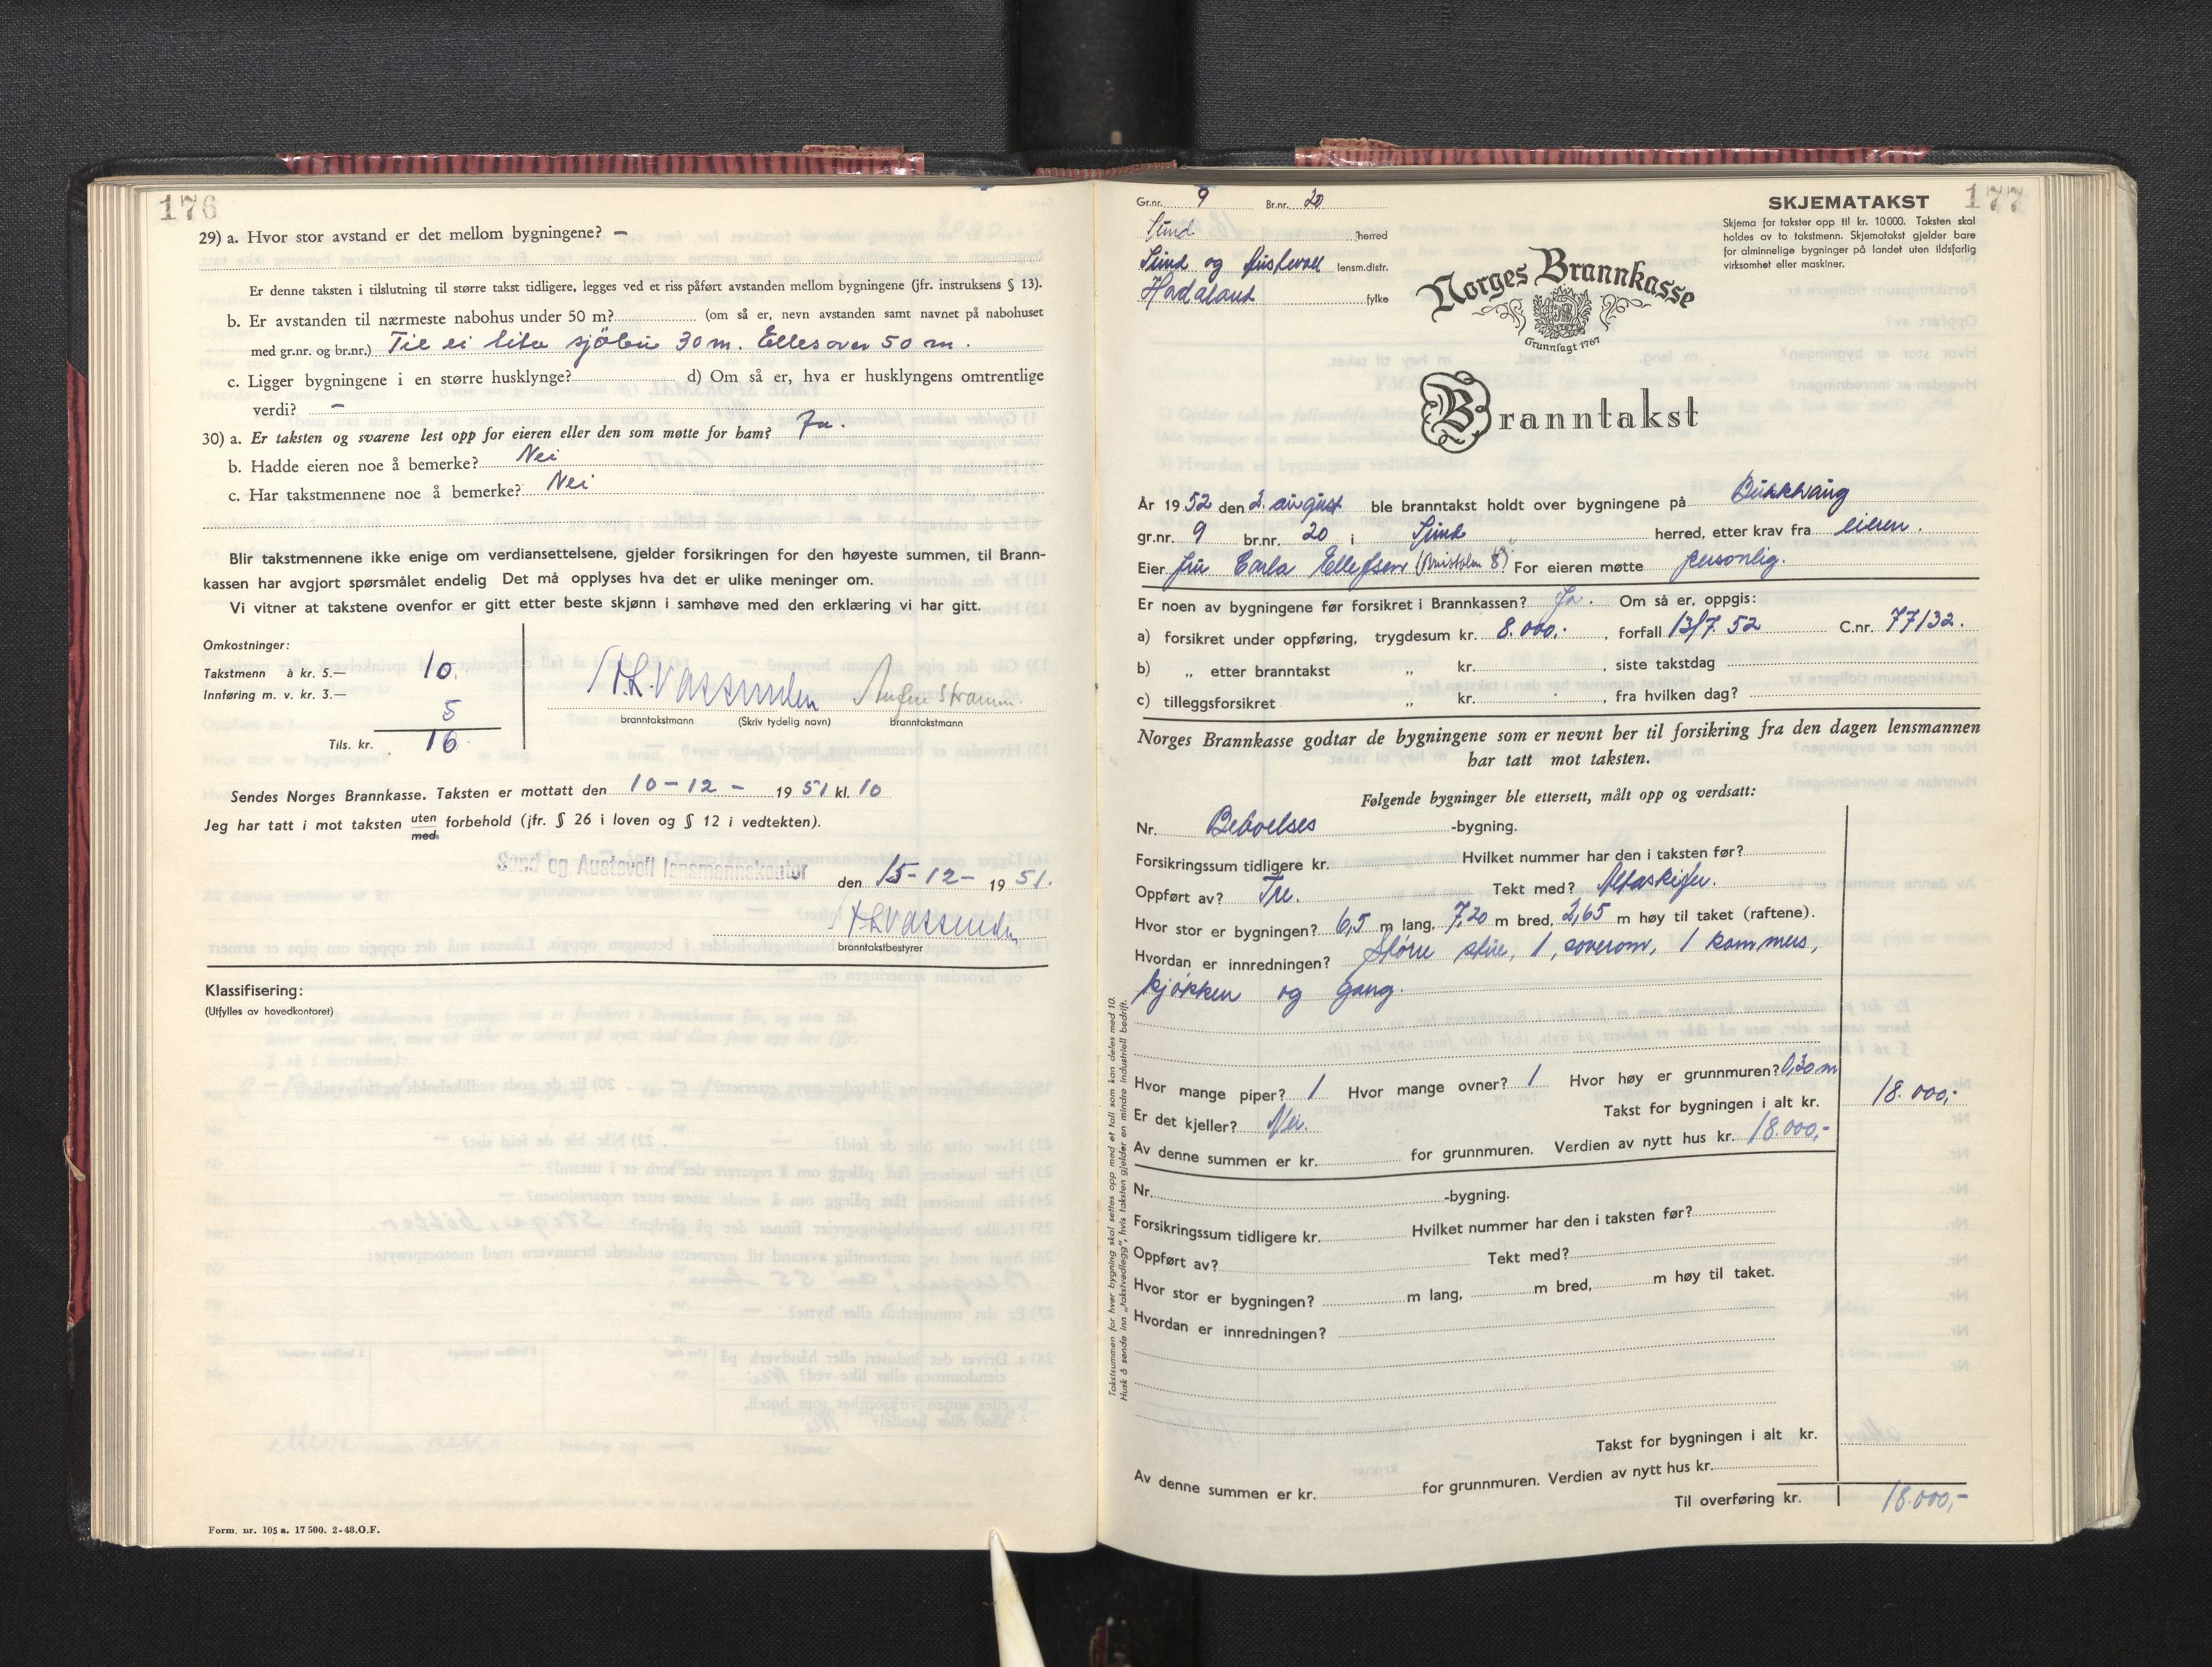 176
29) a. Hvor stor avstand er det mellom bygningene? –
Er denne taksten i tilslutning til større takst tidligere, legges ved et riss påført avstanden mellom bygningene (jfr. instruksens § 13).
b. Er avstanden til nærmeste nabohus under 50 m? (om så er, nevn avstanden samt navnet på nabohuset
med gr.nr. og br.nr.) Til ei lita sjöbu 30 m. Elles over 50 m.
c. Ligger bygningene i en større husklynge? d) Om så er, hva er husklyngens omtrentlige
verdi? –
30) a. Er taksten og svarene lest opp for eieren eller den som møtte for ham? Ja.
b. Hadde eieren noe å bemerke? Nei
c. Har takstmennene noe å bemerke? Nei
Blir takstmennene ikke enige om verdiansettelsene, gjelder forsikringen for den høyeste summen, til Brann-
kassen har avgjort spørsmålet endelig Det må opplyses hva det er ulike meninger om.
Vi vitner at takstene ovenfor er gitt etter beste skjønn i samhøve med den erklæring vi har gitt.
Omkostninger:
Takstmenn à kr. 5.— 10.
Innføring m. v. kr. 3.—
5
Tils. kr. 16
branntakstmann (Skriv tydelig navn) branntakstmann
Sendes Norges Brannkasse. Taksten er mottatt den 10-12- 1951 kl. 10
Jeg har tatt i mot taksten uten forbehold (jfr. § 26 i loven og § 12 i vedtekten).
med
Sund og Austevoll lensmannskontor den 15-12- 1951.
branntakstbestyrer
Klassifisering:
(Utfylles av hovedkontoret)
Form. nr. 105 a. 17500. 2-48.O.F.
177
Gr.nr. 9 Br.nr. 20
Sund herred
Sund og Austevoll lensm.distr.
Hordaland fylke
SKJEMATAKST
Skjema for takster opp til kr. 10000. Taksten skal
holdes av to takstmenn. Skjematakst gjelder bare
for alminnelige bygninger på landet uten ildsfarlig
virksomhet eller maskiner.
Norges Brannkasse
Grunnlagt 1767
Branntakst
År 1952 den 2. august ble branntakst holdt over bygningene på
gr.nr. 9 br.nr. 20 i Sund herred, etter krav fra eieren.
Eier fru Carla Ellefsen For eieren møtte personlig.
Er noen av bygningene før forsikret i Brannkassen? Ja. Om så er, oppgis:
a) forsikret under oppføring, trygdesum kr. 8.000,-, forfall 13/7. 52 C.nr. 77132.
b) „ etter branntakst „ kr. , siste takstdag
c) tilleggsforsikret „ kr. , fra hvilken dag?
Norges Brannkasse godtar de bygningene som er nevnt her til forsikring fra den dagen lensmannen
har tatt mot taksten.
Følgende bygninger ble ettersett, målt opp og verdsatt:
Nr. Beboelses -bygning.
Forsikringssum tidligere kr. Hvilket nummer har den i taksten før?
Oppført av? Tre. Tekt med? Altaskifer.
Hvor stor er bygningen? 6,5 m lang, 7,20 m bred, 2,65 m høy til taket (raftene).
Hvordan er innredningen? Større stue, 1 soverom, 1 kammers,
kjøkken og gang.
Hvor mange piper? 1 Hvor mange ovner? 1 Hvor høy er grunnmuren? 0,30 m
Er det kjeller? Nei. Takst for bygningen i alt kr. 18.000,-
Av denne summen er kr. for grunnmuren. Verdien av nytt hus kr. 18.000,-
Nr. -bygning.
Forsikringssum tidligere kr. Hvilket nummer har den i taksten før?
Oppført av? Tekt med?
Hvor stor er bygningen? m lang, m bred, m høy til taket.
Hvordan er innredningen?
Takst for bygningen i alt kr.
Av denne summen er kr. for grunnmuren. Verdien av nytt hus kr.
Til overføring kr. 18.000,-
Takstsummen for hver bygning skal settes opp med et tall som kan deles med 10.
Husk å sende inn „takstvedlegg", hvis taksten gjelder en mindre industriell bedrift.